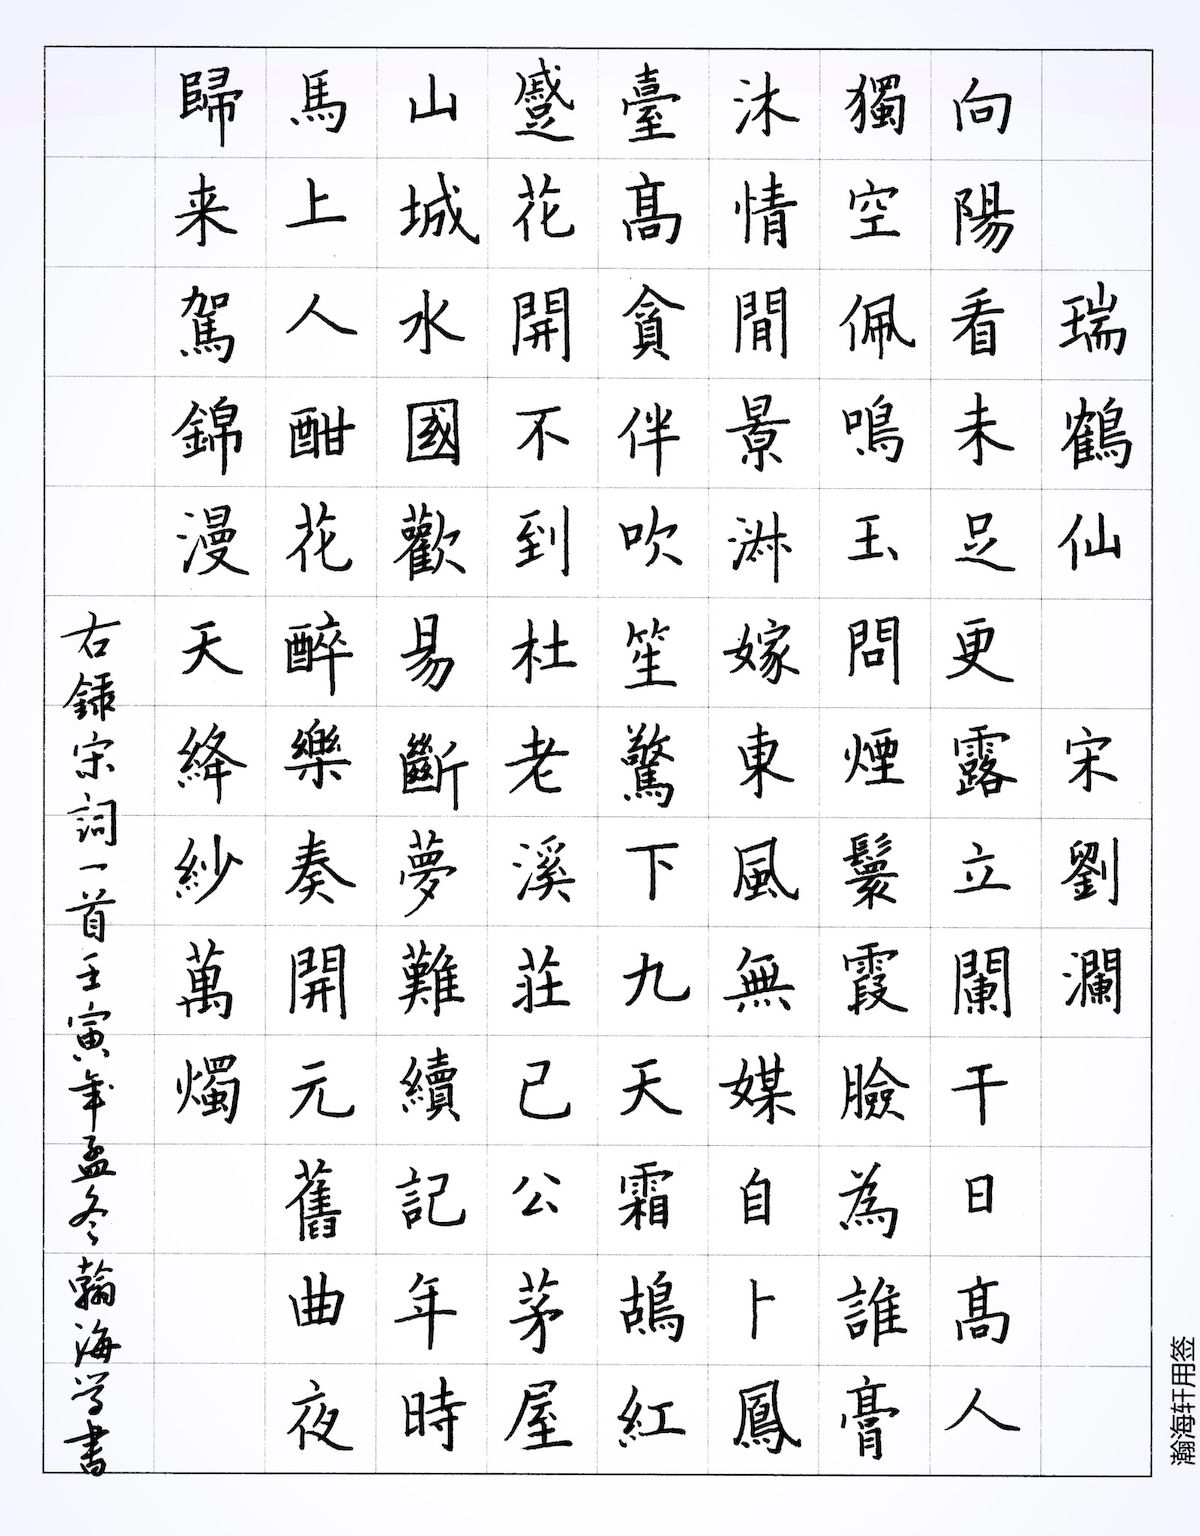 瑞鶴仙 宋劉瀾
向陽看未足更露立闌干日高人
獨空佩鳴玉問煙鬟霞臉為誰膏
沐情閒景淋嫁東風無媒自卜鳳
臺高貪伴吹笙驚下九天霜鵠紅
蹙花開不到杜老溪莊已公茅屋
山城水國歡易斷夢難續記年時
馬上人酣花醉樂奏開元舊曲夜
歸来駕錦漫天絳紗萬燭
右録宋詞一首壬寅年孟冬翰海學書
瀚海轩用签